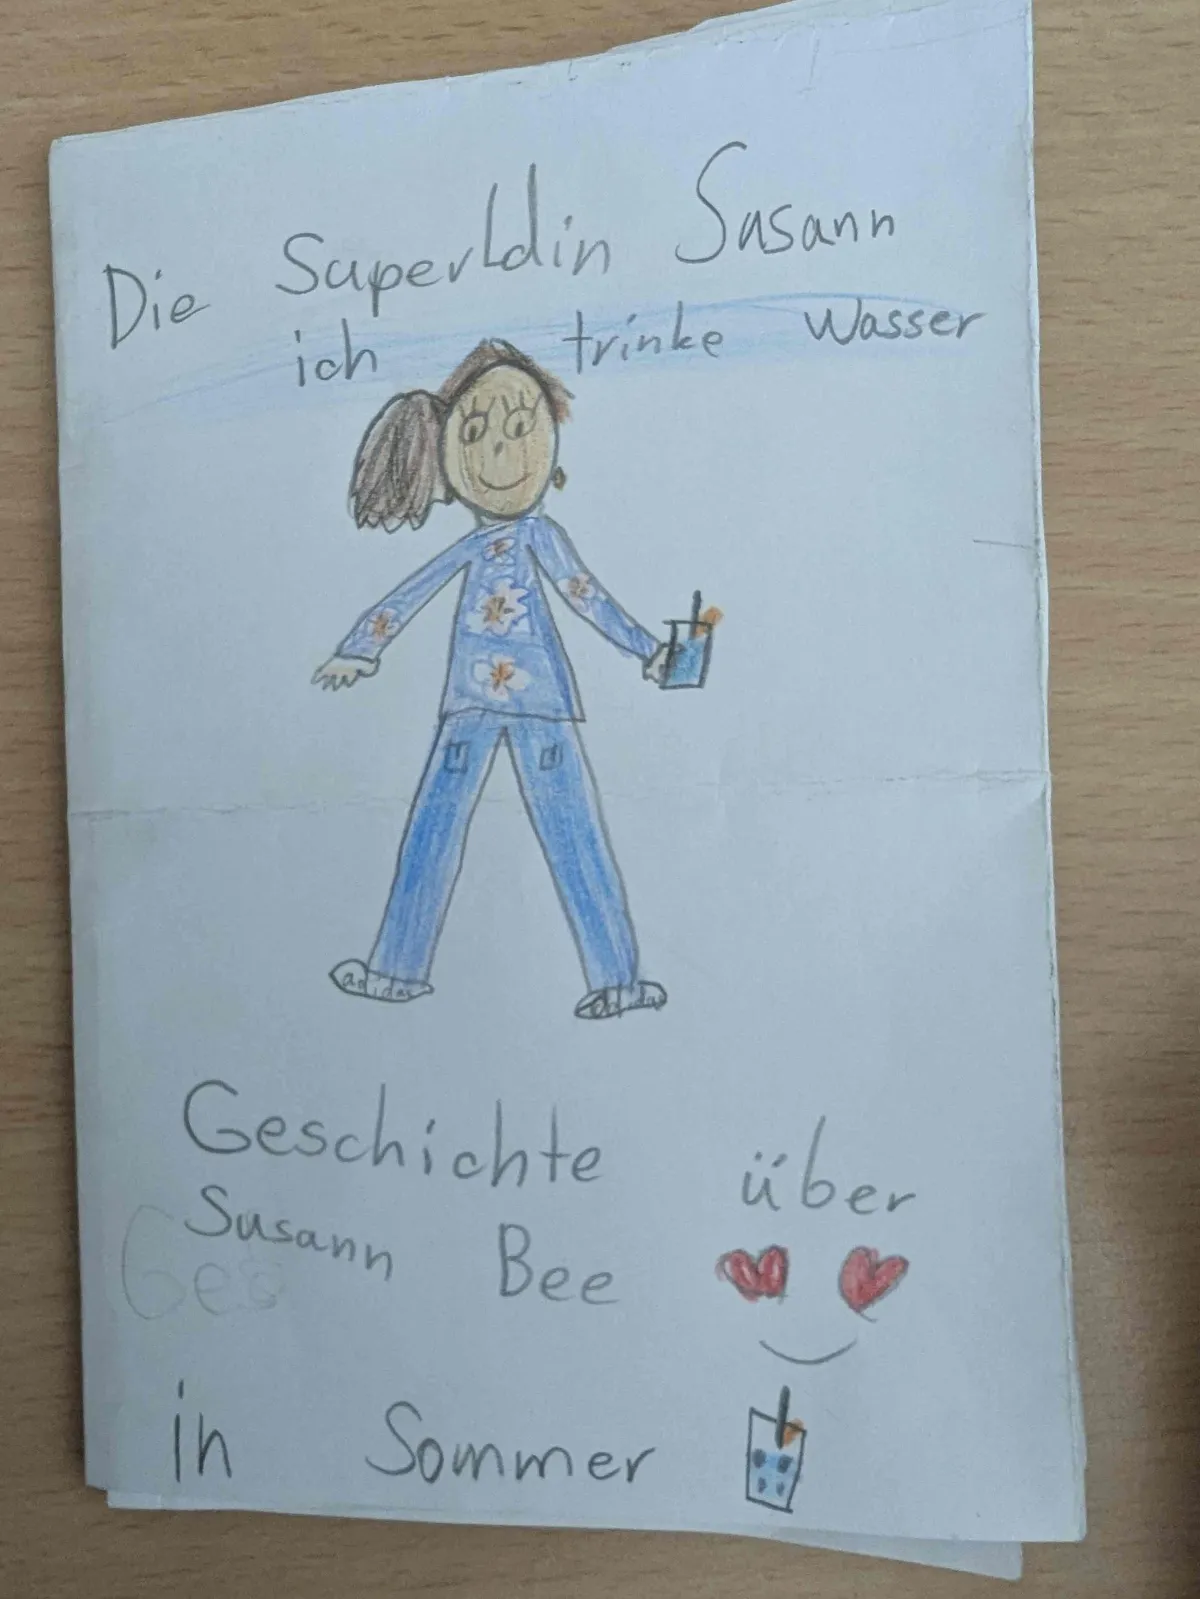 Die Superldin Susann
ich trinke Wasser
adidas adidas
Geschichte über
Susann Bee
Ges
in Sommer